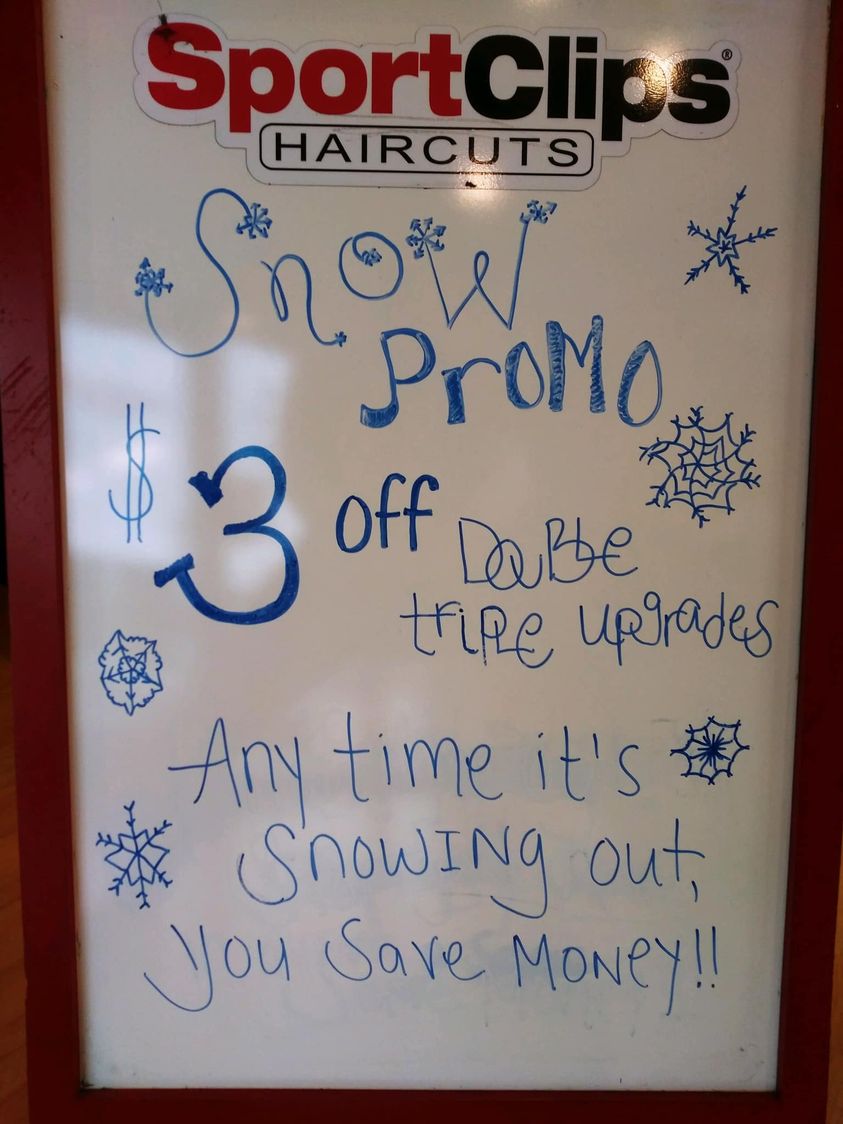 SportClips®
HAIRCUTS
Snow
ProMo
$3 off DouBle
triPLe upgrades
Any time it's
SnowING out,
you Save MoNey!!